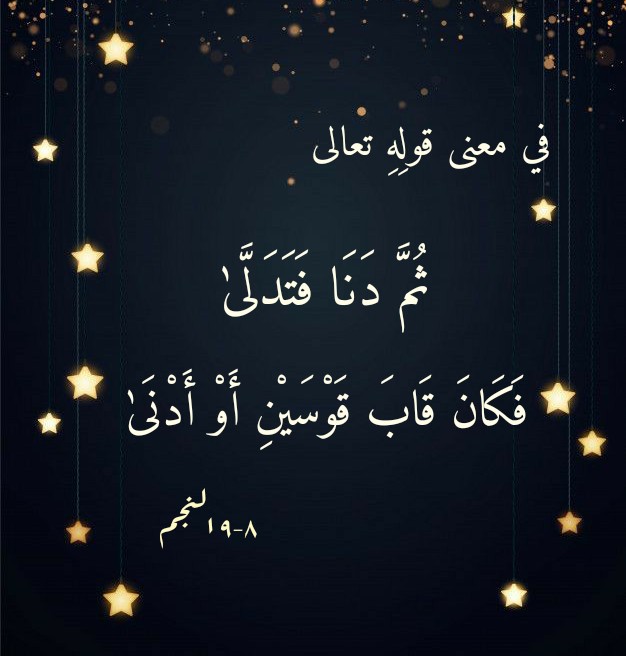 في معنى قولِهِ تعالى
ثُمَّ دَنَا فَتَدَلَّىٰ
فَكَانَ قَابَ قَوْسَيْنِ أَوْ أَدْنَىٰ
٨-١٩لنجم